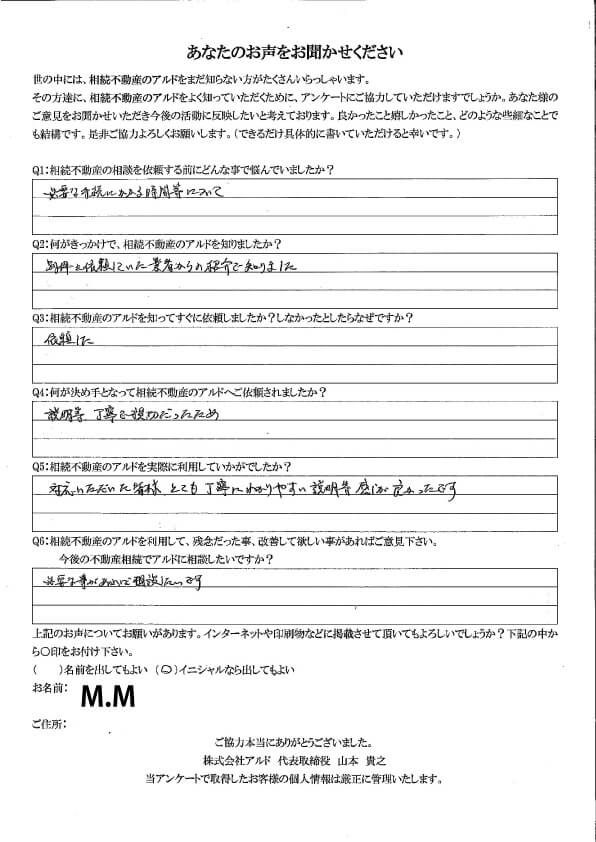 あなたのお声をお聞かせください
世の中には、相続不動産のアルドをまだ知らない方がたくさんいらっしゃいます。
その方達に、相続不動産のアルドをよく知っていただくために、アンケートにご協力していただけますでしょうか。あなた様の
ご意見をお聞かせいただき今後の活動に反映したいと考えております。良かったこと嬉しかったこと、どのような些細なことで
も結構です。是非ご協力よろしくお願いします。（できるだけ具体的に書いていただけると幸いです。）
Q1：相続不動産の相談を依頼する前にどんな事で悩んでいましたか？
必要な手続にかかる時間等について
Q2：何がきっかけで、相続不動産のアルドを知りましたか？
別件で依頼していた業者からの紹介で知りました
Q3：相続不動産のアルドを知ってすぐに依頼しましたか？しなかったとしたらなぜですか？
依頼した
Q4：何が決め手となって相続不動産のアルドへご依頼されましたか？
説明等 丁寧で親切だったため
Q5：相続不動産のアルドを実際に利用していかがでしたか？
対応いただいた皆様 とても丁寧にわかりやすい説明等 感じが良かったです
Q6：相続不動産のアルドを利用して、残念だった事、改善して欲しい事があればご意見下さい。
今後の不動産相続でアルドに相談したいですか？
必要な事があれば相談したいです
上記のお声についてお願いがあります。インターネットや印刷物などに掲載させて頂いてもよろしいでしょうか？下記の中か
ら〇印をお付け下さい。
（　　）名前を出してもよい （〇）イニシャルなら出してもよい
お名前： M.M
ご住所：
ご協力本当にありがとうございました。
株式会社アルド 代表取締役 山本 貴之
当アンケートで取得したお客様の個人情報は厳正に管理いたします。